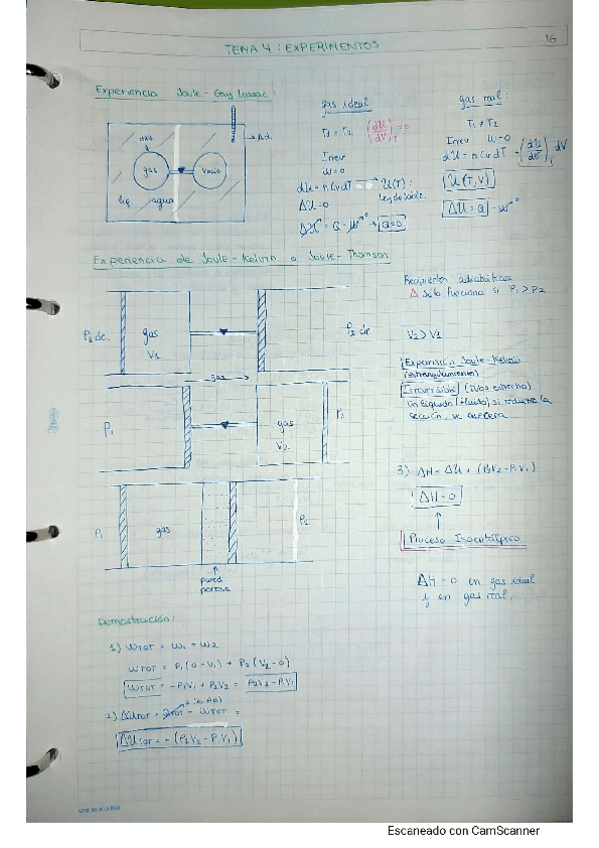 TEMA 4: EXPERIMENTOS
16
Experiencia Joule-Gay Lussac:
gas
vacío
liq agua
gas ideal
T1 = T2 (dU/dV)T = 0
Irrev
W=0
dU = n Cv dT → U(T):
Ley de Joule.
ΔU = 0
ΔU = Q - W → Q=0
gas real:
T1 ≠ T2
Irrev W=0
dU = n Cv dT + (dU/dV)T dV
U(T,V)
ΔU = Q - W
Experiencia de Joule-Kelvin o Joule-Thomson
P1 cte.
gas
V1
P2 cte
gas →
P1
gas
V2
P2
P1
gas
P2
pared
porosa
Recipientes adiabáticos
Δ solo funciona si P1 > P2
V2 > V1
Expansión Joule-Kelvin
(estrangulamiento)
Irreversible (tubo estrecho)
un líquido (fluido) si reduce la
sección, se acelera
3) ΔH = ΔU + (P2V2 - P1V1)
ΔH = 0
Proceso Isoentálpico
ΔH = 0 en gas ideal
y en gas real.
Demostración:
1) WTOT = W1 + W2
WTOT = P1(0-V1) + P2(V2-0)
WTOT = -P1V1 + P2V2 = P2V2 - P1V1
2) ΔUTOT = QTOT - WTOT =
ΔUTOT = -(P2V2 - P1V1)
Escaneado con CamScanner